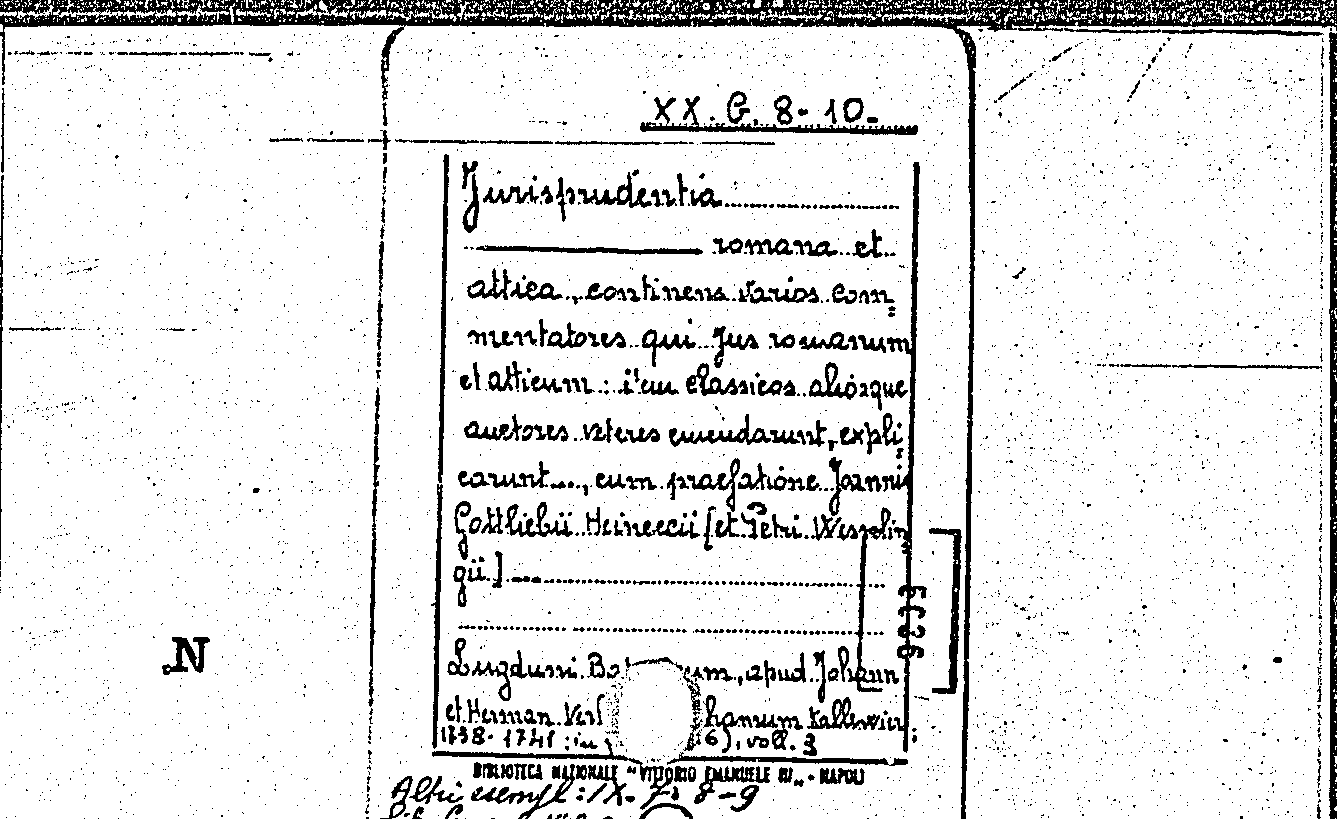 XX. G. 8-10.
Jurisprudentia
romana et
attica, continens varios com
mentatores qui Jus romanum
et atticum: item classicos aliosque
auctores veteres emendarunt, expli
carunt..., cum praefatione Joannis
Gottliebii Heineccii [et Petri Wesselin
gii.]
Lugduni Bo um, apud Johann
et Herman Ver hanum Kallewier;
1738-1741: in 6), voll. 3
BIBLIOTECA NAZIONALE "VITTORIO EMANUELE III" - NAPOLI
Altri esempl: IX. 7. 8-9
N